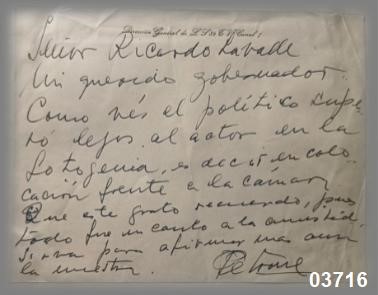 Dirección General de L.S.82 T.V. Canal 7
Señor Ricardo Lavalle
Mi querido gobernador:
Como vés el político supe-
ró lejos al actor en la
fotogenia, es decir en colo-
cación frente a la cámara
Que este grato recuerdo, pues
todo fue un canto a la amistad,
sirva para afirmar mas aun
la nuestra.
Petrone
03716